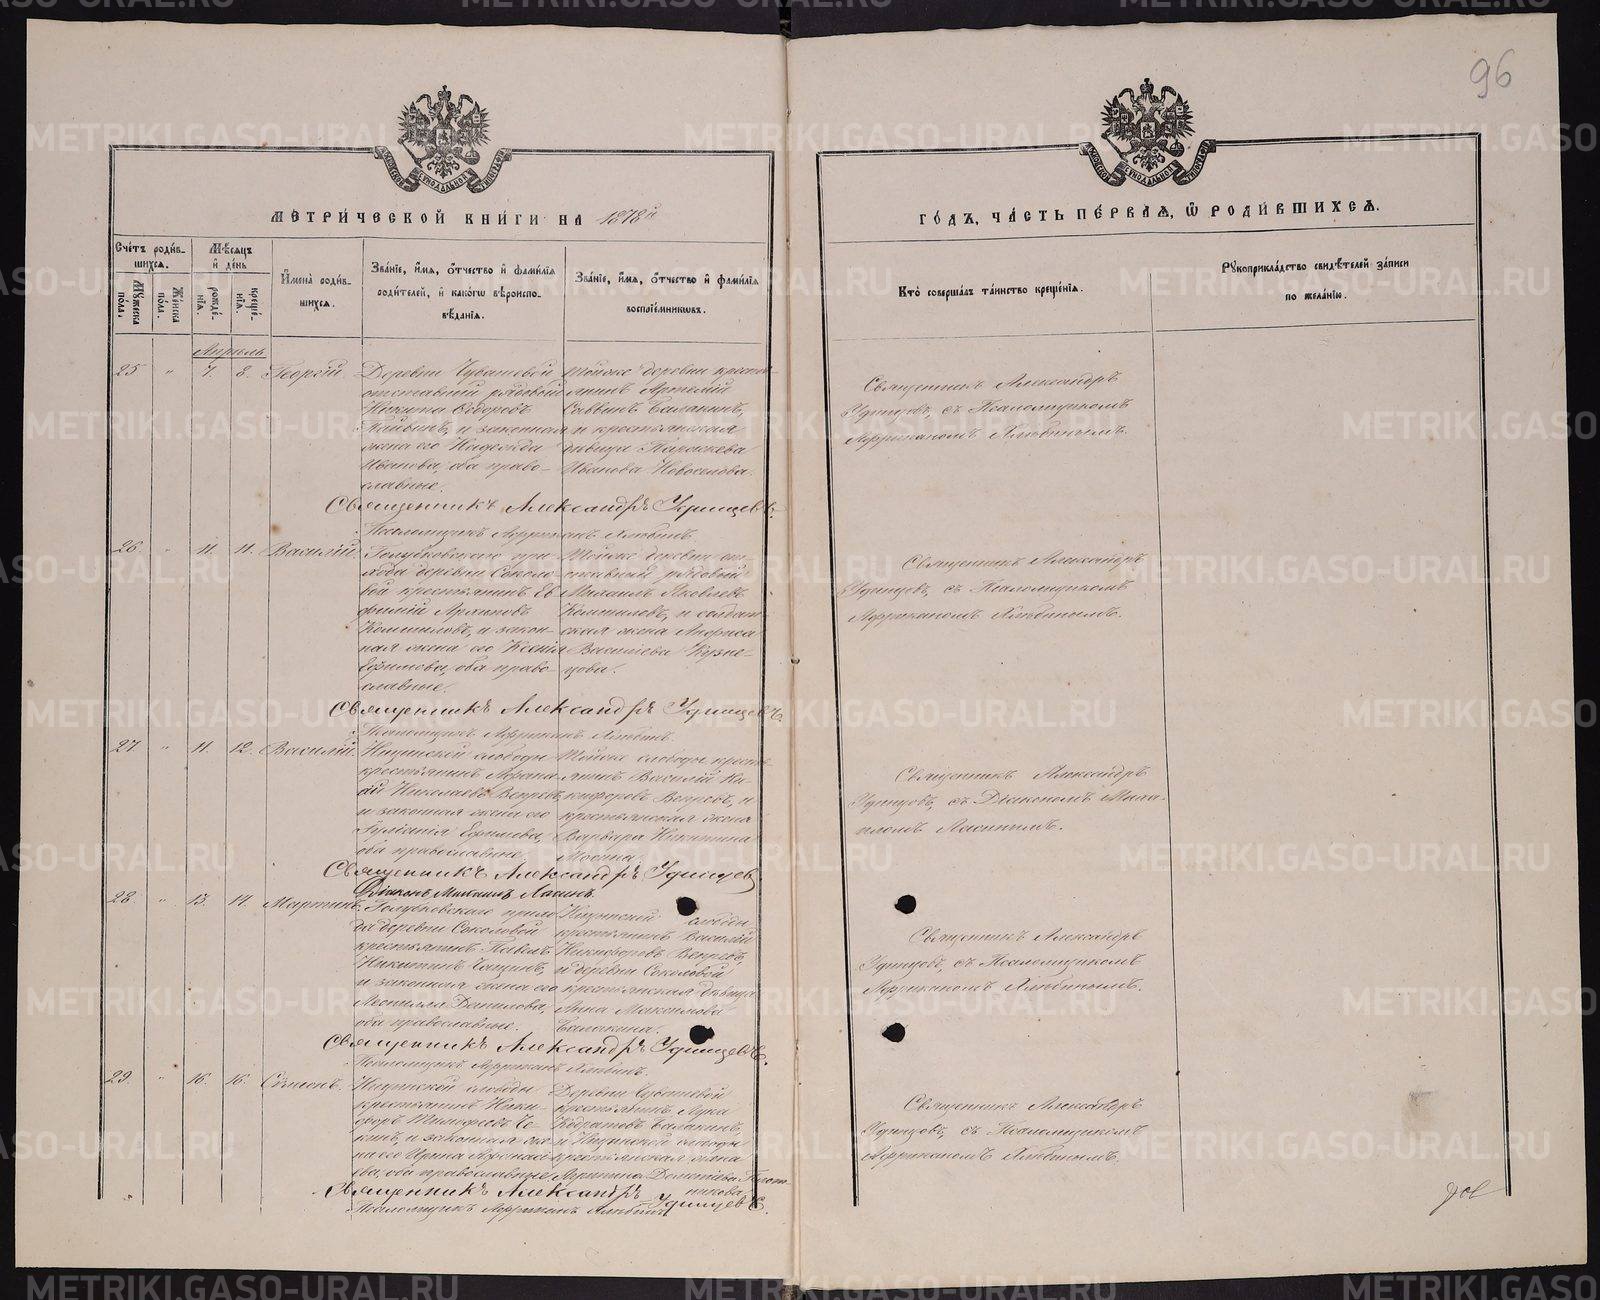 96
МЕТРИ́ЧЕСКОЙ КНИ́ГИ НА 1878й
ГО́ДЪ, ЧА́СТЬ ПЕ́РВАЯ, Ѿ РОДИ́ВШИХСЯ.
Сче́тъ роди́в-
шихся.
Му́жеска по́ла.
Же́нска по́ла.
Мѣ́сяцъ и де́нь
рожде́-
нїя.
креще́-
нїя.
И́мена роди́в-
шихся.
Зва́нїе, и́мя, о́тчество и фами́лїя
роди́телей, и како́гѡ вѣроиспо-
вѣ́данїя.
Зва́нїе, и́мя, о́тчество и фами́лїя
воспрїе́мниковъ.
Кто́ соверша́лъ та́инство креще́нїя.
Рукоприкла́дство свидѣ́телей за́писи
по жела́нїю.
Апрель
25 " 7. 8. Георгій
Деревни Чувашевой
отставный рядовой
Никита Ѳедоровъ
и законная
жена его Надежда
Иванова, оба право-
славные.
Тойже деревни кресть-
янинъ Артемій
Саввинъ Балакинъ,
и крестьянская
дѣвица Параскева
Иванова Новоселова.
Священникъ Александръ
Удинцовъ, съ Псаломщикомъ
Африканомъ
Священникъ Александръ Удинцевъ.
Псаломщикъ Африканъ
26. " 11. 11. Василій
Голубковскаго при-
хода деревни Соколо-
вой крестьянинъ Ев-
фимій Архиповъ
и закон-
ная жена его Ксенія
Ефимова, оба право-
славные.
Тойже деревни от-
ставный рядовый
Михаилъ Яковлевъ
и солдат-
ская жена Анфиса
Васильева Кузне-
цова.
Священникъ Александръ
Удинцовъ, съ Псаломщикомъ
Африканомъ
Священникъ Александръ Удинцевъ
Псаломщикъ Африканъ
27 " 11. 12. Василій
Ницинской слободы
крестьянинъ Афана-
сій Николаевъ Вепревъ,
и законная жена его
Гулянія Ефимова,
оба православные.
Тойже слободы кресть-
янинъ Василій Ни-
кифоровъ Вепревъ, и
крестьянская жена
Варвара Никитина
Мосина.
Священникъ Александръ
Удинцовъ, съ Діакономъ Миха-
иломъ
Священникъ Александръ Удинцев
Діаконъ Михаилъ
28. " 13. 14. Мартинъ.
Голубковскаго прихо-
да деревни Соколовой
крестьянинъ Павелъ
Никитинъ
и законная жена его
Данилова,
оба православные.
Ницинской слободы
крестьянинъ Василій
Никифоровъ Вепревъ,
и деревни Соколовой
крестьянская дѣвица
Анна Максимова
Балакина.
Священникъ Александръ
Удинцовъ, съ Псаломщикомъ
Африканомъ
Священникъ Александръ Удинцевъ.
Псаломщикъ Африканъ
29. " 16. 16. Сѵмеонъ.
Ницинской слободы
крестьянинъ Ники-
форъ Тимофеевъ
и законная же-
на его Ирина Афонась-
ева, оба православные
Деревни Чувашевой
крестьянинъ Лука
Кодратовъ Балакинъ,
и Ницинской слободы
крестьянская жена
Священникъ Александръ
Удинцовъ, съ Псаломщикомъ
Африканомъ
Священникъ Александръ Удинцевъ.
Псаломщикъ Африканъ
METRIKI.GASO-URAL.RU